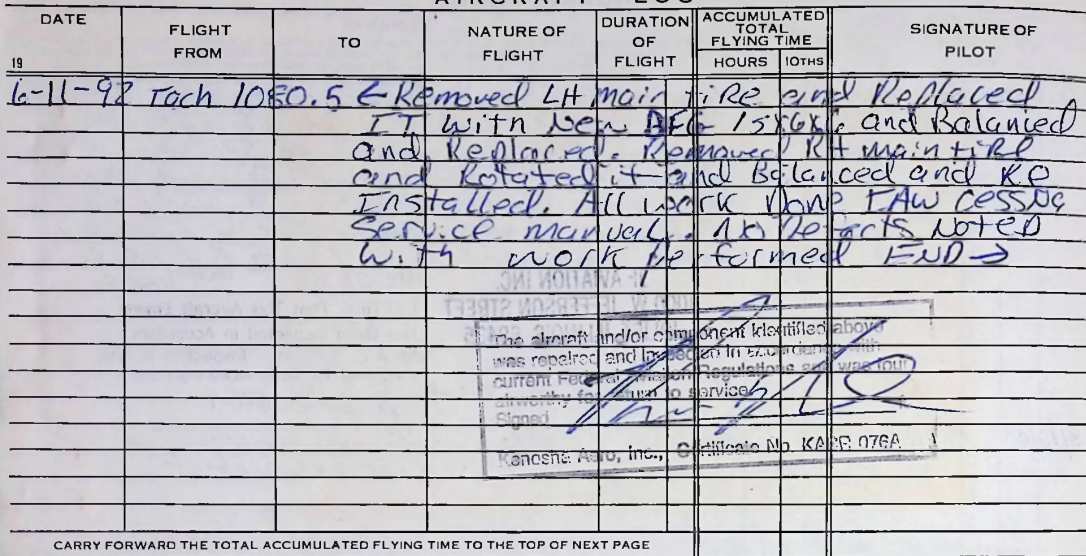 AIRCRAFT LOG
DATE
19
FLIGHT
FROM
TO
NATURE OF
FLIGHT
DURATION
OF
FLIGHT
ACCUMULATED
TOTAL
FLYING TIME
HOURS
10THS
SIGNATURE OF
PILOT
6-11-92 Tach 1080.5 ← Removed LH main tire and Replaced
IT with New BFG 15x6x6 and Balanced
and Replaced. Removed RH main tire
and Rotated it and Balanced and Re
Installed. All work Done IAW Cessna
Service manual. No Defects Noted
With work Performed END →
AVIATION INC.
W. JEFFERSON STREET
The aircraft and/or component identified above
was repaired and inspected in accordance with
current Federal Aviation Regulations and was found
airworthy for return to service.
Signed
Kenosha Aero, Inc., Certificate No. KABR 076A
CARRY FORWARD THE TOTAL ACCUMULATED FLYING TIME TO THE TOP OF NEXT PAGE